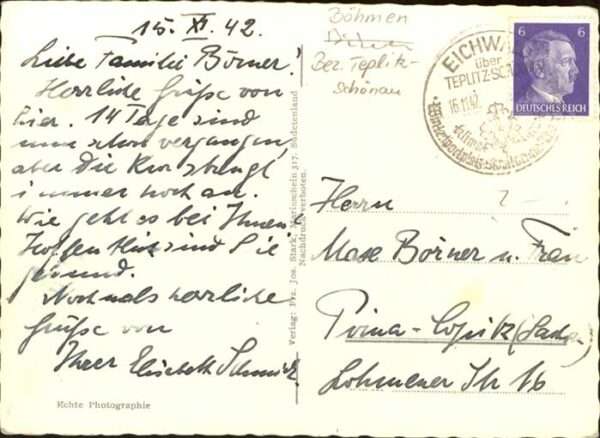 15. XI. 42.
Liebe Familie Börner!
Herrliche Grüße von
hier. 14 Tage sind
nun schon vergangen,
aber Die Kur strengt
immer noch an.
Wie geht es bei Ihnen?
Hoffentlich sind Sie
gesund.
Nochmals herzliche
Grüße von
Ihrer Elisabeth Schmidt
Echte Photographie
Verlag: Frz. Jos. Stark, Mariaschein 317. Sudetenland
Nachdruck verboten.
Böhmen
Bez. Teplitz-
Schönau
EICHWA
über
TEPLITZ-SCH
16.11.42
6 6
DEUTSCHES REICH
Herrn
Max Börner u. Frau
Pirna-Copitz (Sachsen)
Lohmener Str 16